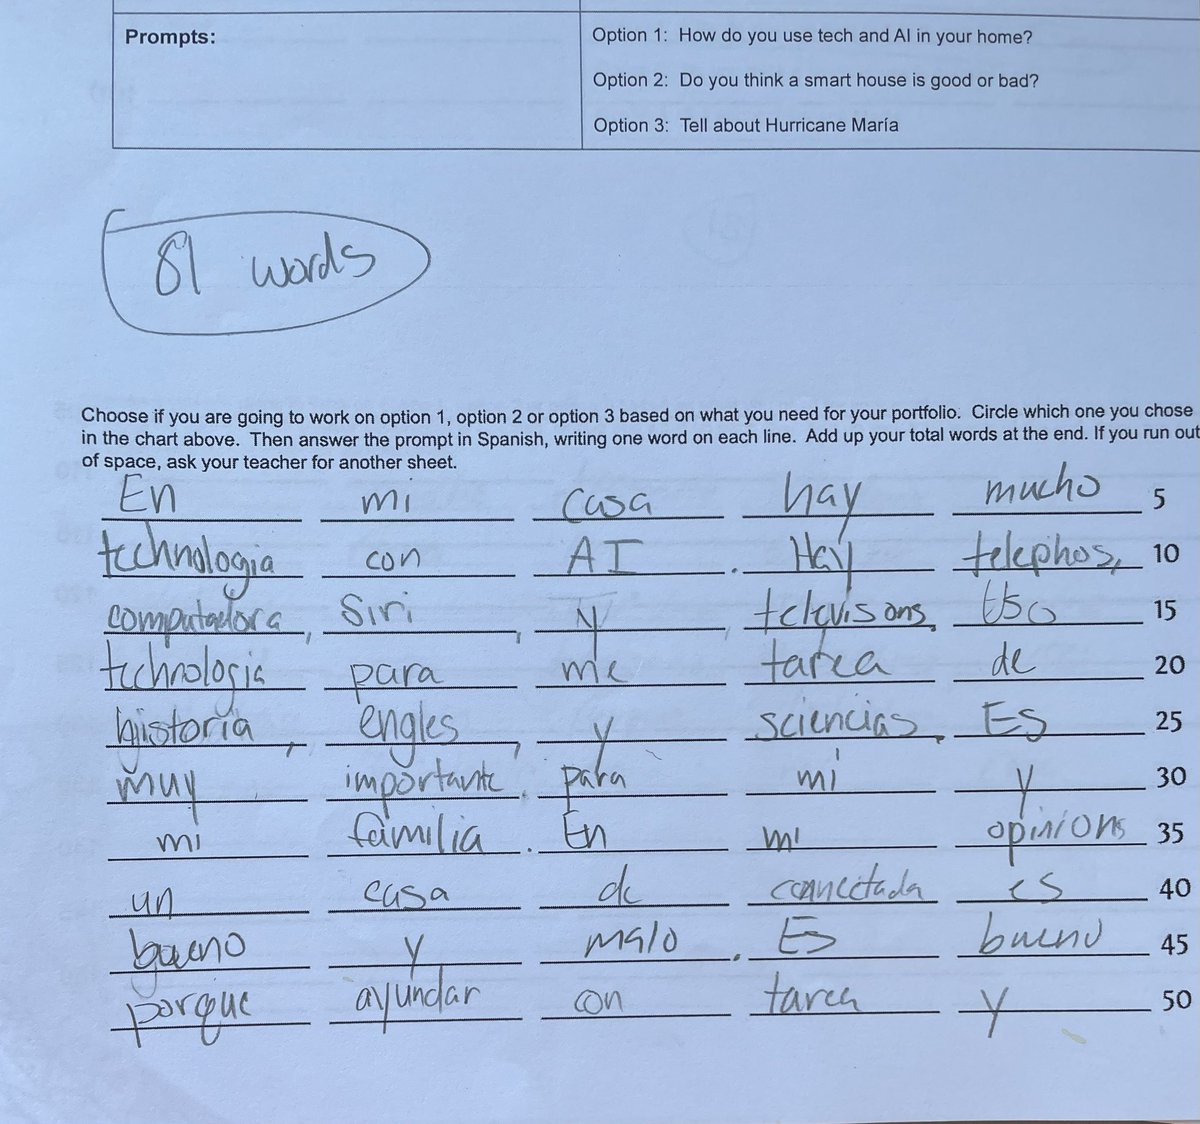 Prompts:
Option 1: How do you use tech and AI in your home?
Option 2: Do you think a smart house is good or bad?
Option 3: Tell about Hurricane María
81 words
Choose if you are going to work on option 1, option 2 or option 3 based on what you need for your portfolio. Circle which one you chose
in the chart above. Then answer the prompt in Spanish, writing one word on each line. Add up your total words at the end. If you run out
of space, ask your teacher for another sheet.
En mi casa hay mucho 5
technologia con AI. Hay telephos, 10
computadora, Siri, y televisons. Uso 15
technologia para me tarea de 20
historia, engles, y sciencias. Es 25
muy importante para mi y 30
mi familia. En mi opinions 35
un casa de connectada es 40
bueno y malo. Es bueno 45
porque ayundar con tarea y 50